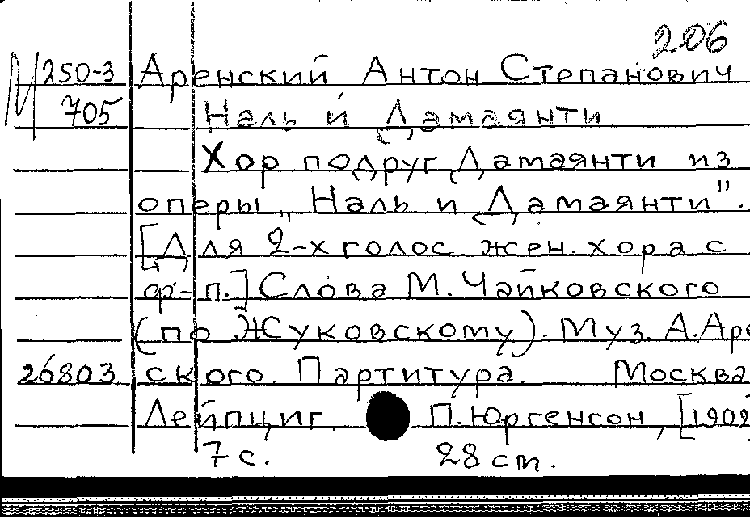 206
М 250-3 Аренский Антон Степанович
705 Наль и Дамаянти
Хор подруг Дамаянти из
оперы „Наль и Дамаянти".
[Для 2-х голос. жен. хора с
ф-п.] Слова М. Чайковского
(по Жуковскому). Муз. А. Аре
26803 ского. Партитура. Москва
Лейпциг. П. Юргенсон, [1909
7 с. 28 см.